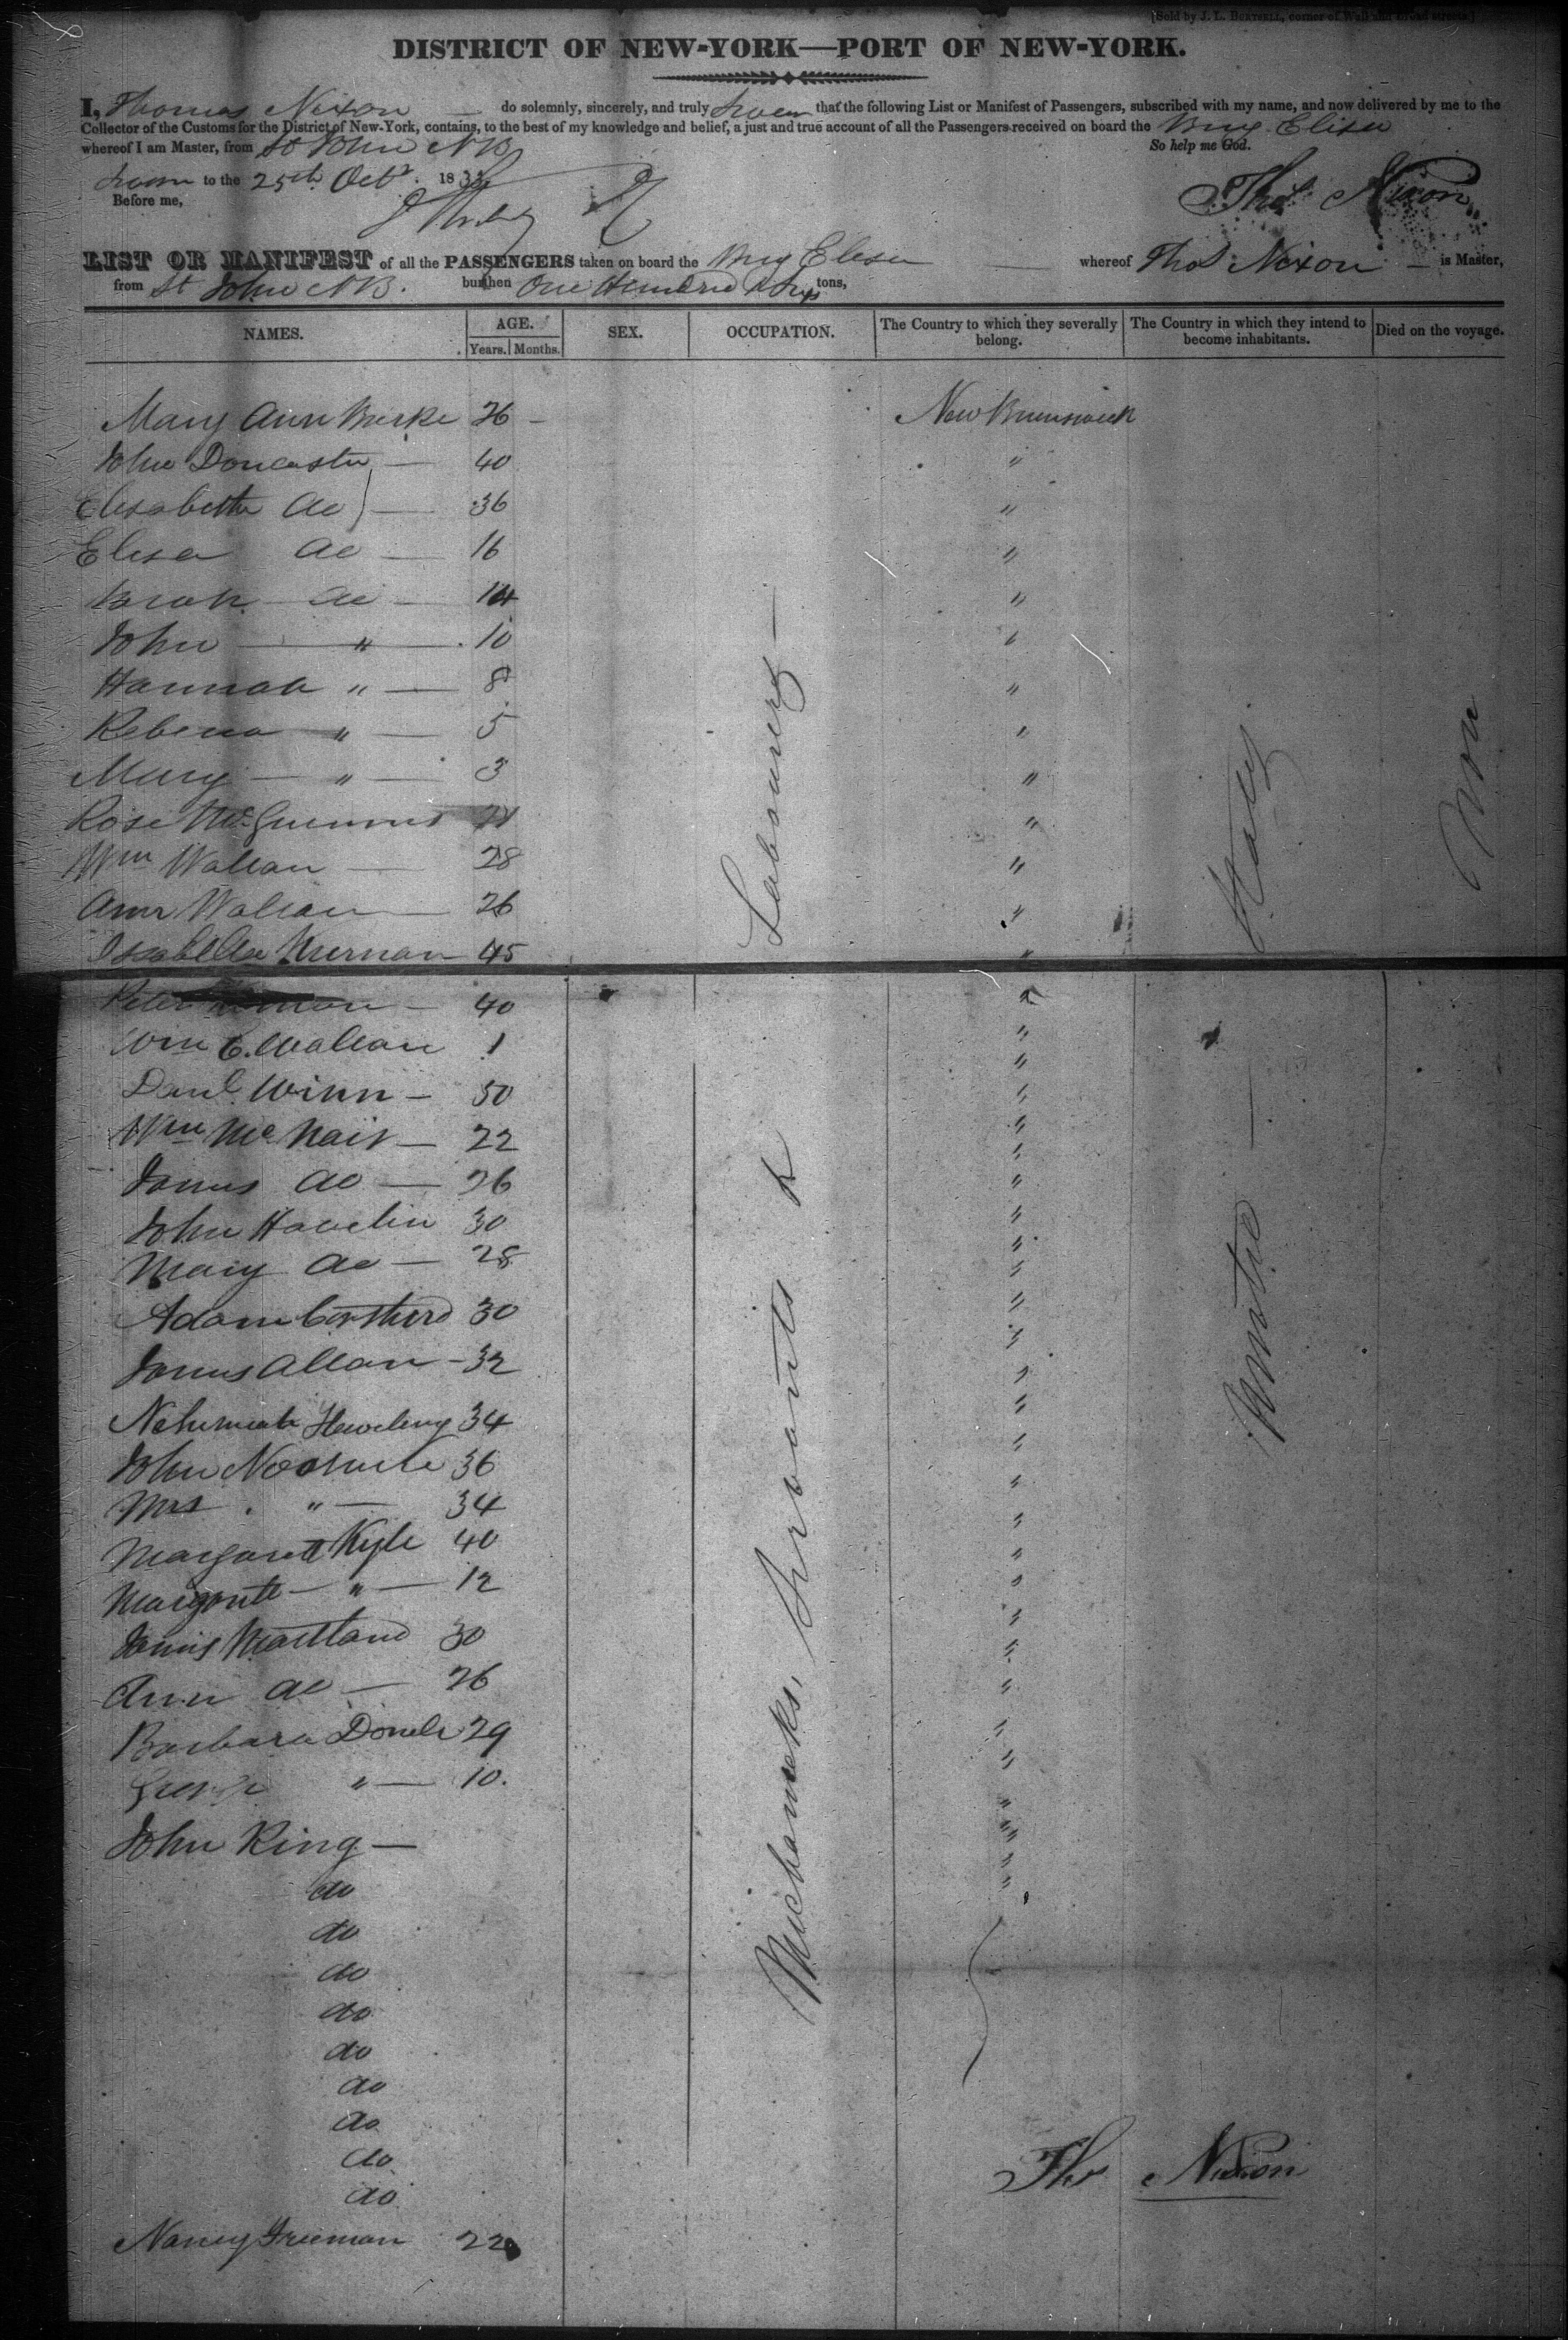 [Sold by J. L. BURTSELL, corner of Wall and Broad streets.]
DISTRICT OF NEW-YORK—PORT OF NEW-YORK.
I, Thomas Nixon do solemnly, sincerely, and truly swear that the following List or Manifest of Passengers, subscribed with my name, and now delivered by me to the
Collector of the Customs for the District of New-York, contains, to the best of my knowledge and belief, a just and true account of all the Passengers received on board the Brig Elisa
whereof I am Master, from St John NB So help me God.
Sworn to the 25th Octr. 183 Thos Nixon
Before me,
LIST OR MANIFEST of all the PASSENGERS taken on board the Brig Elisa whereof Thos Nixon is Master,
from St John NB. burthen One Hundred tons,
NAMES. AGE. SEX. OCCUPATION. The Country to which they severally belong. The Country in which they intend to become inhabitants. Died on the voyage.
Years. Months.
Mary Ann Burke 26 – New Brunswick
John Doncaster — 40 "
Elisabeth do — 36 "
Elisa do — 16 "
Sarah do — 14 "
John — " — 10 "
Hannah " — 8 "
Rebecca " — 5 "
Mary — " — 3 "
Rose "
Wm Wallan — 28 "
Ann Wallan — 26 "
Isabella — 45 "
Peter — 40 "
Wm C. Wallan 1 "
Danl. Winn – 50 "
Wm McNair — 22 "
James do — 26 "
John Havelin 30 "
Mary do — 28 "
Adam 30 "
James Allan – 32 "
Nehemiah 34 "
John 36 "
Mrs. " — 34 "
Margarett Kyle 40 "
Margarett — " — 12 "
James Maitland 30 "
Ann do — 26 "
Barbara 29 "
George " — 10. "
John King —
do
do
do
do
do
do
do
do
do
Nancy Freeman 22
Mechanicks, Servants &
Labourers —
United
States
Non
Thos Nixon